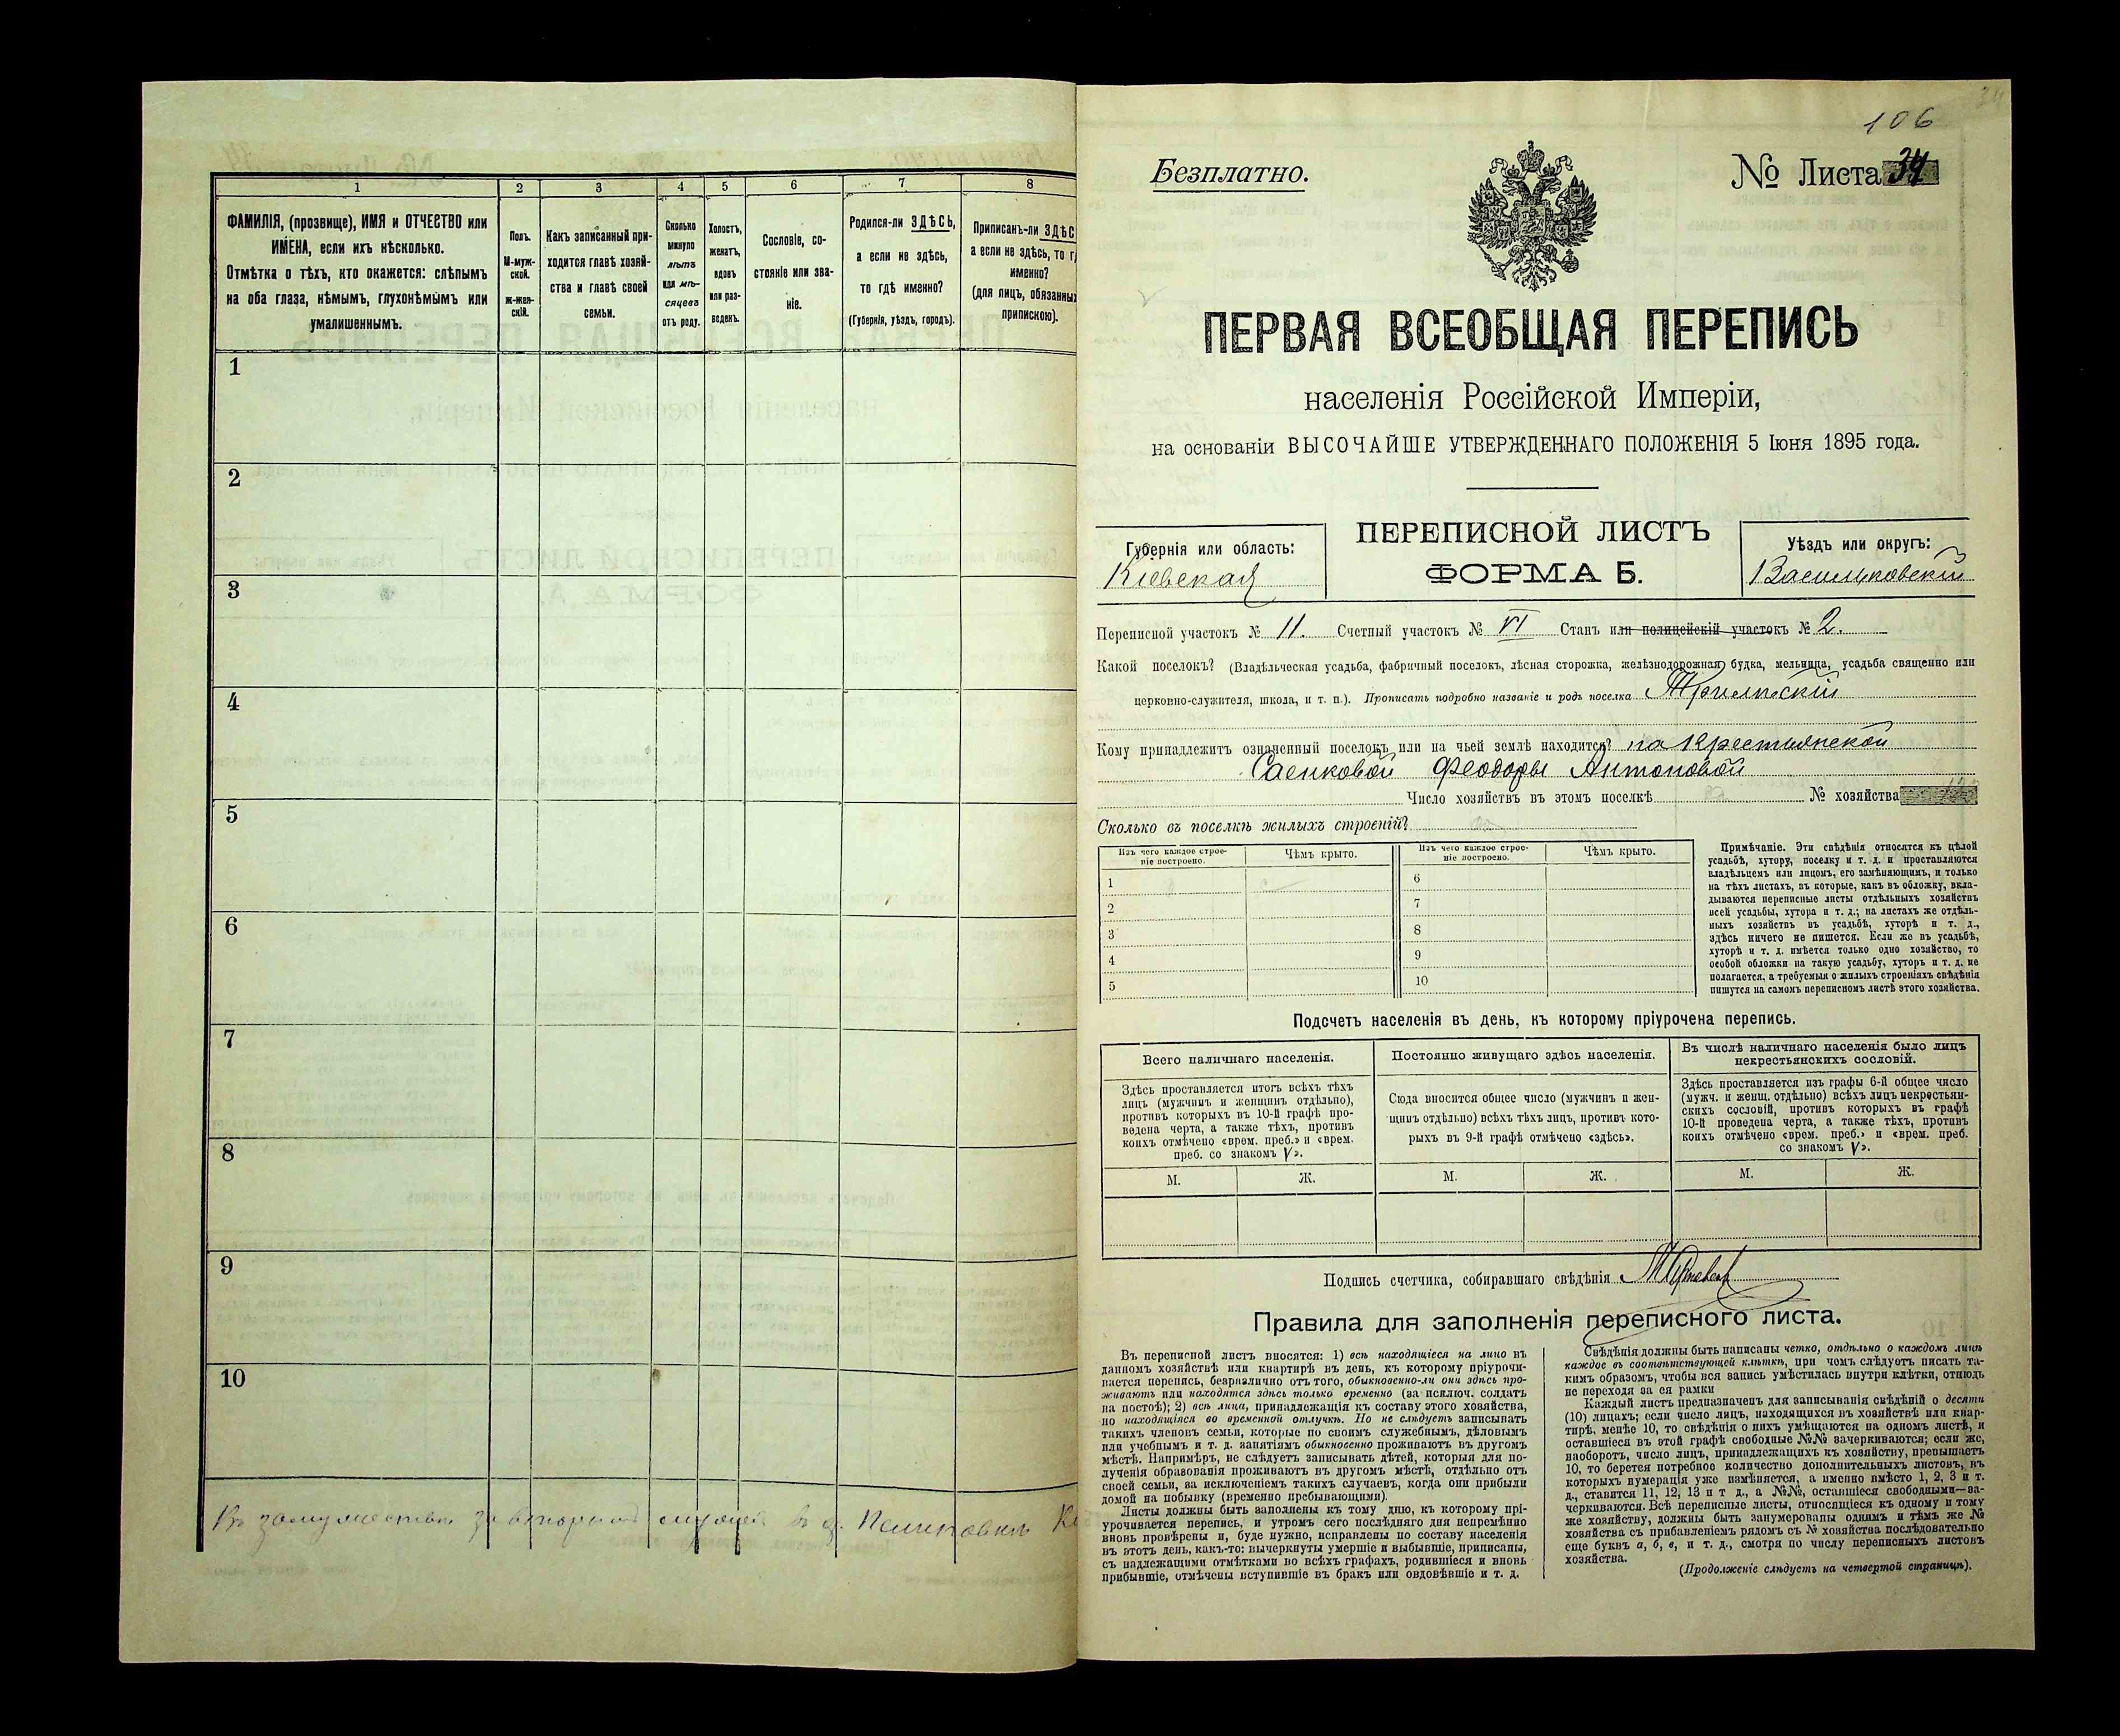 1 2 3 4 5 6 7 8
ФАМИЛІЯ, (прозвище), ИМЯ и ОТЧЕСТВО или
ИМЕНА, если ихъ нѣсколько.
Отмѣтка о тѣхъ, кто окажется: слѣпымъ
на оба глаза, нѣмымъ, глухонѣмымъ или
умалишеннымъ.
Полъ.
М-муж-
ской.
ж-жен-
скій.
Какъ записанный при-
ходится главѣ хозяй-
ства и главѣ своей
семьи.
Сколько
минуло
лѣтъ
или мѣ-
сяцевъ
отъ роду.
Холостъ,
женатъ,
вдовъ
или раз-
веденъ.
Сословіе, со-
стояніе или зва-
ніе.
Родился-ли ЗДѢСЬ,
а если не здѣсь,
то гдѣ именно?
(Губернія, уѣздъ, городъ).
Приписанъ-ли ЗДѢС
а если не здѣсь, то г
именно?
(для лицъ, обязанны
припискою).
1
2
3
4
5
6
7
8
9
10
въ
106
34
Безплатно.
№ Листа 34
ПЕРВАЯ ВСЕОБЩАЯ ПЕРЕПИСЬ
населенія Россійской Имперіи,
на основаніи ВЫСОЧАЙШЕ УТВЕРЖДЕННАГО ПОЛОЖЕНІЯ 5 Іюня 1895 года.
Губернія или область:
Кіевская
ПЕРЕПИСНОЙ ЛИСТЪ
ФОРМА Б.
Уѣздъ или округъ:
Васильковскій
Переписной участокъ № 11. Счетный участокъ № VI Станъ или полицейскій участокъ № 2.
Какой поселокъ? (Владѣльческая усадьба, фабричный поселокъ, лѣсная сторожка, желѣзнодорожная будка, мельница, усадьба священно или
церковно-служителя, школа, и т. п.). Прописать подробно названіе и родъ поселка Трилѣсскій
Кому принадлежитъ означенный поселокъ или на чьей землѣ находится? на Крестьянской
Саенковой Феодоры Антоновой
Число хозяйствъ въ этомъ поселкѣ № хозяйства
Сколько въ поселкѣ жилыхъ строеній?
Изъ чего каждое строе-
ніе построено.
Чѣмъ крыто.
Изъ чего каждое строе-
ніе построено.
Чѣмъ крыто.
1 6
2 7
3 8
4 9
5 10
Примѣчаніе. Эти свѣдѣнія относятся къ цѣлой
усадьбѣ, хутору, поселку и т. д. и проставляются
владѣльцемъ или лицомъ, его замѣняющимъ, и только
на тѣхъ листахъ, въ которые, какъ въ обложку, вкла-
дываются переписные листы отдѣльныхъ хозяйствъ
всей усадьбы, хутора и т. д.; на листахъ же отдѣль-
ныхъ хозяйствъ въ усадьбѣ, хуторѣ и т. д.,
здѣсь ничего не пишется. Если же въ усадьбѣ,
хуторѣ и т. д. имѣется только одно хозяйство, то
особой обложки на такую усадьбу, хуторъ и т. д. не
полагается, а требуемыя о жилыхъ строеніяхъ свѣдѣнія
пишутся на самомъ переписномъ листѣ этого хозяйства.
Подсчетъ населенія въ день, къ которому пріурочена перепись.
Всего наличнаго населенія.
Здѣсь проставляется итогъ всѣхъ тѣхъ
лицъ (мужчинъ и женщинъ отдѣльно),
противъ которыхъ въ 10-й графѣ про-
ведена черта, а также тѣхъ, противъ
коихъ отмѣчено «врем. преб.» и «врем.
преб. со знакомъ V».
М. Ж.
Постоянно живущаго здѣсь населенія.
Сюда вносится общее число (мужчинъ и жен-
щинъ отдѣльно) всѣхъ тѣхъ лицъ, противъ кото-
рыхъ въ 9-й графѣ отмѣчено «здѣсь».
М. Ж.
Въ числѣ наличнаго населенія было лицъ
некрестьянскихъ сословій.
Здѣсь проставляется изъ графы 6-й общее число
(мужч. и женщ. отдѣльно) всѣхъ лицъ некрестьян-
скихъ сословій, противъ которыхъ въ графѣ
10-й проведена черта, а также тѣхъ, противъ
коихъ отмѣчено «врем. преб.» и «врем. преб.
со знакомъ V».
М. Ж.
Подпись счетчика, собиравшаго свѣдѣнія
Правила для заполненія переписного листа.
Въ переписной листъ вносятся: 1) всѣ находящіеся на лицо въ
данномъ хозяйствѣ или квартирѣ въ день, къ которому пріурочи-
вается перепись, безразлично отъ того, обыкновенно-ли они здѣсь про-
живаютъ или находятся здѣсь только временно (за исключ. солдатъ
на постоѣ); 2) всѣ лица, принадлежащія къ составу этого хозяйства,
но находящіяся во временной отлучкѣ. Но не слѣдуетъ записывать
такихъ членовъ семьи, которые по своимъ служебнымъ, дѣловымъ
или учебнымъ и т. д. занятіямъ обыкновенно проживаютъ въ другомъ
мѣстѣ. Напримѣръ, не слѣдуетъ записывать дѣтей, которыя для по-
лученія образованія проживаютъ въ другомъ мѣстѣ, отдѣльно отъ
своей семьи, за исключеніемъ такихъ случаевъ, когда они прибыли
домой на побывку (временно пребывающими).
Листы должны быть заполнены къ тому дню, къ которому прі-
урочивается перепись, и утромъ сего послѣдняго дня непремѣнно
вновь провѣрены и, буде нужно, исправлены по составу населенія
въ этотъ день, какъ-то: вычеркнуты умершіе и выбывшіе, приписаны,
съ надлежащими отмѣтками во всѣхъ графахъ, родившіеся и вновь
прибывшіе, отмѣчены вступившіе въ бракъ или овдовѣвшіе и т. д.
Свѣдѣнія должны быть написаны четко, отдѣльно о каждомъ лицѣ
каждое въ соотвѣтствующей клѣткѣ, при чемъ слѣдуетъ писать та-
кимъ образомъ, чтобы вся запись умѣстилась внутри клѣтки, отнюдь
не переходя за ея рамки
Каждый листъ предназначенъ для записыванія свѣдѣній о десяти
(10) лицахъ; если число лицъ, находящихся въ хозяйствѣ или квар-
тирѣ, менѣе 10, то свѣдѣнія о нихъ умѣщаются на одномъ листѣ, и
оставшіеся въ этой графѣ свободные №№ зачеркиваются; если же,
наоборотъ, число лицъ, принадлежащихъ къ хозяйству, превышаетъ
10, то берется потребное количество дополнительныхъ листовъ, въ
которыхъ нумерація уже измѣняется, а именно вмѣсто 1, 2, 3 и т.
д., ставится 11, 12, 13 и т д., а №№, оставшіеся свободными—за-
черкиваются. Всѣ переписные листы, относящіеся къ одному и тому
же хозяйству, должны быть занумерованы однимъ и тѣмъ же №
хозяйства съ прибавленіемъ рядомъ съ № хозяйства послѣдовательно
еще буквъ а, б, в, и т. д., смотря по числу переписныхъ листовъ
хозяйства.
(Продолженіе слѣдуетъ на четвертой страницѣ).